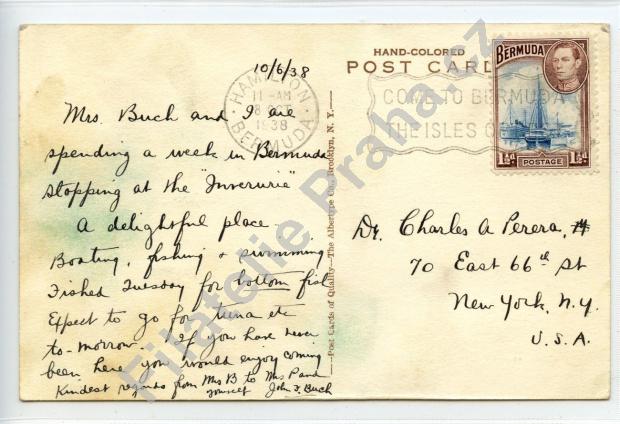 HAND-COLORED
POST CARD
BERMUDA
POSTAGE
1½d 1½d
HAMILTON
11-AM
8 OCT
1938
BERMUDA
COME TO BERMUDA
THE ISLES O
10/6/38
Mrs. Buch and I are
spending a week in Bermuda
stopping at the "Inverurie"
A delightful place
Boating, fishing & swimming
Fished Tuesday for bottom fish
Expect to go for tuna etc
to-morrow. If you have never
been here you would enjoy coming
Kindest regards from Mrs B to Mrs P and
yourself John F. Buch
Post Cards of Quality—The Albertype Co., Brooklyn, N. Y.
Dr. Charles A Perera,
70 East 66th St
New York, N.Y.
U.S.A.
Filatelie Praha.cz